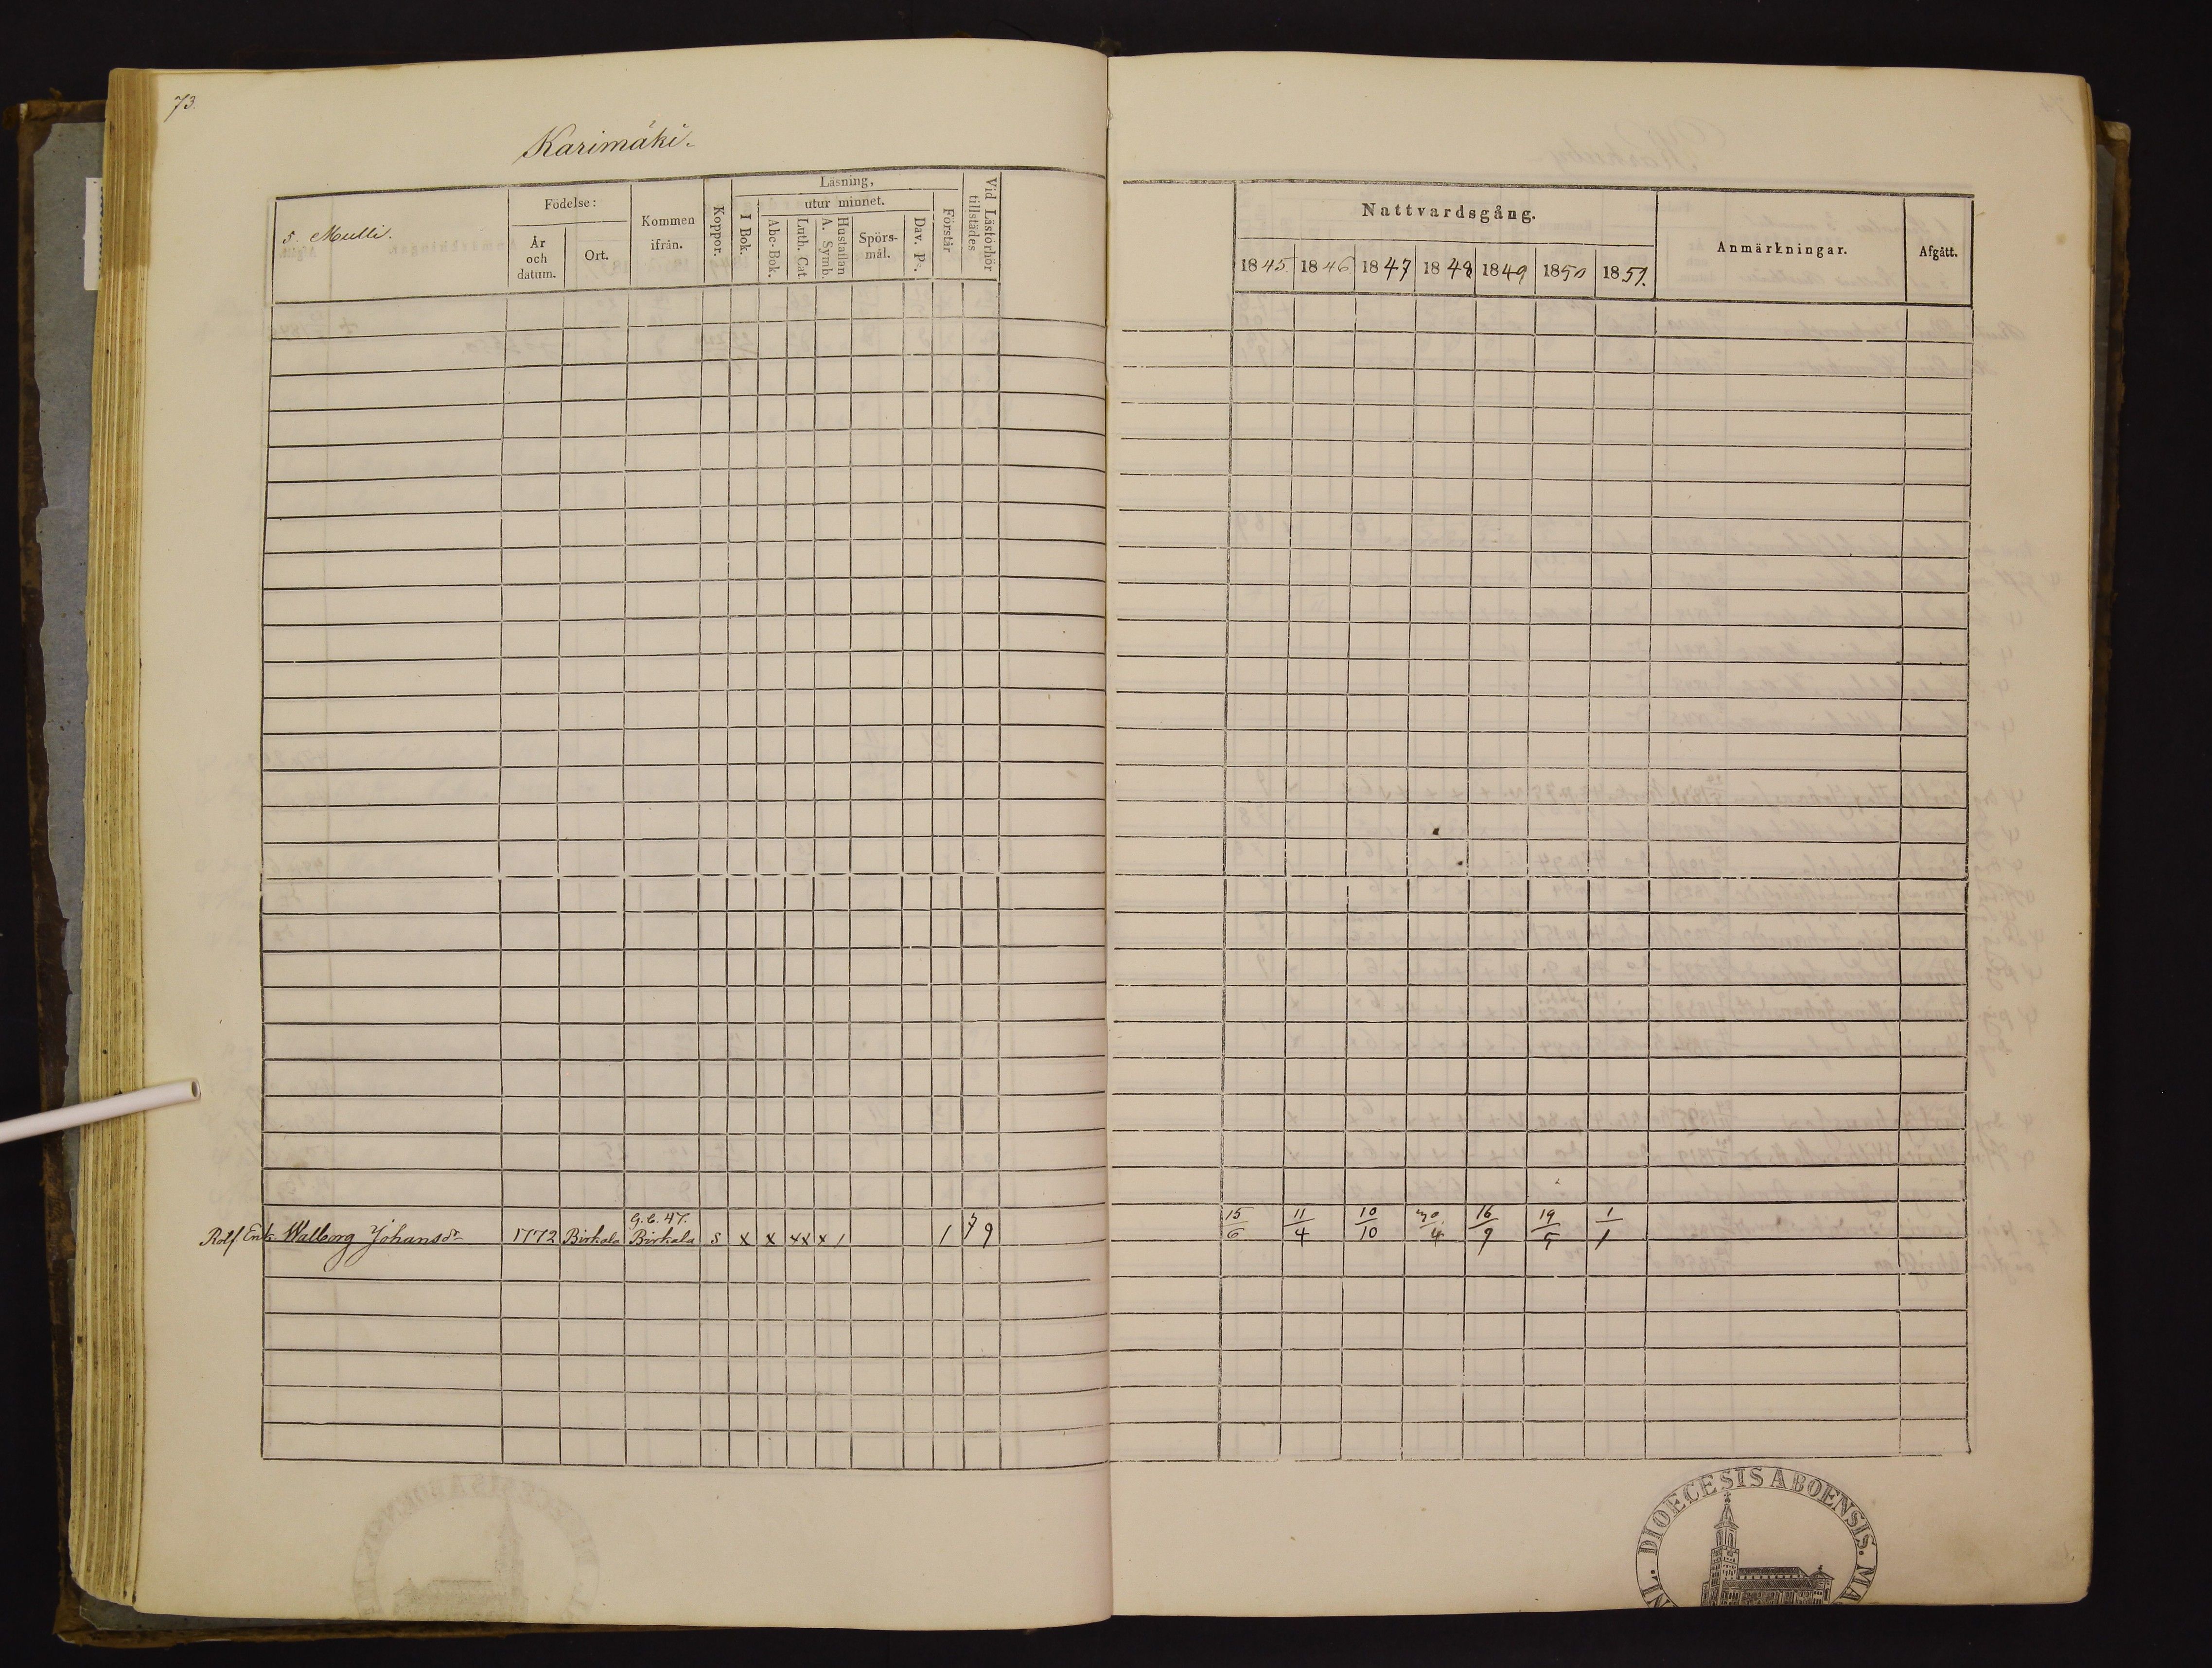 73.
Karimäki.
5. Mulli.
Födelse:
År och datum.
Ort.
Kommen ifrån.
Koppor.
Läsning,
I Bok.
utur minnet.
Abc-Bok.
Luth. Cat.
Hustaflan A. Symb.
Spörs-mål.
Dav. Ps.
Förstår
Vid Läsförhör tillstädes
Nattvardsgång.
1845. 1846 1847 1848 1849 1850 1851.
Anmärkningar.
Afgått.
G.C. 47.
Rolf Enk. Walborg Johansdr 1772 Birkala Birkala s x x xx x 1 1 7 9 15/6 11/4 10/10 30/4 16/9 19/5 1/1
DIOECESIS ABOENSIS. MA